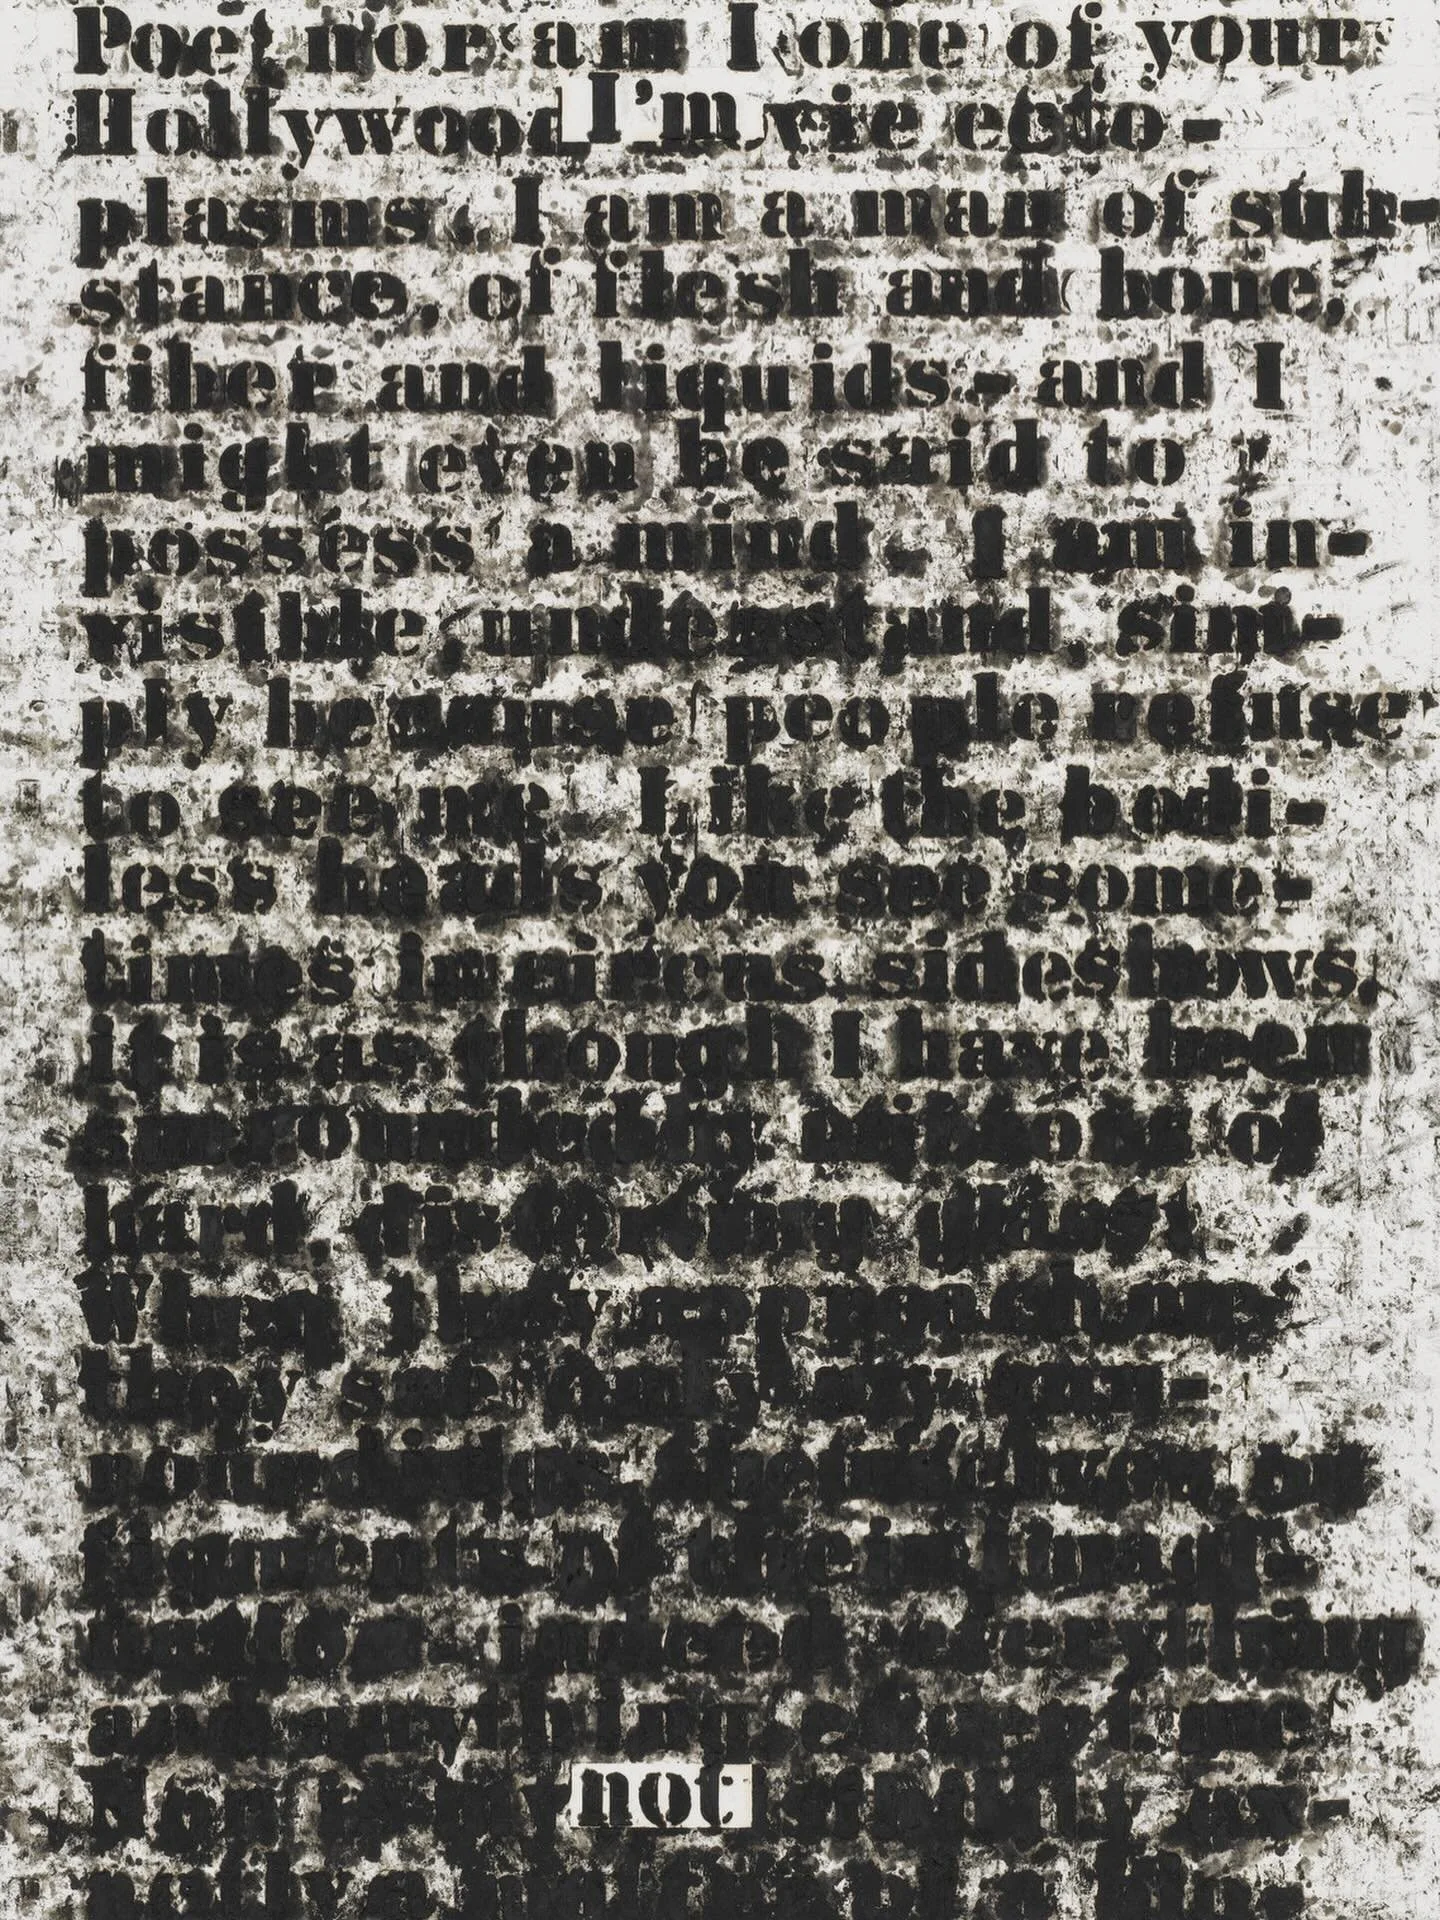 Poe, nor am I one of your
Hollywood I'm vie ecto-
plasms. I am a man of sub-
stance, of flesh and bone,
fiber and liquids - and I
might even be said to
possess a mind. I am in-
visible, understand, sim-
ply because people refuse
to see me. Like the bodi-
less heads you see some-
times in circus sideshows,
it is as though I have been
surrounded by mirrors of
hard, distorting glass.
When they approach me
they see only my sur-
roundings, themselves, or
figments of their imagi-
nation - indeed, everything
and anything except me.
Nor is my not ex-